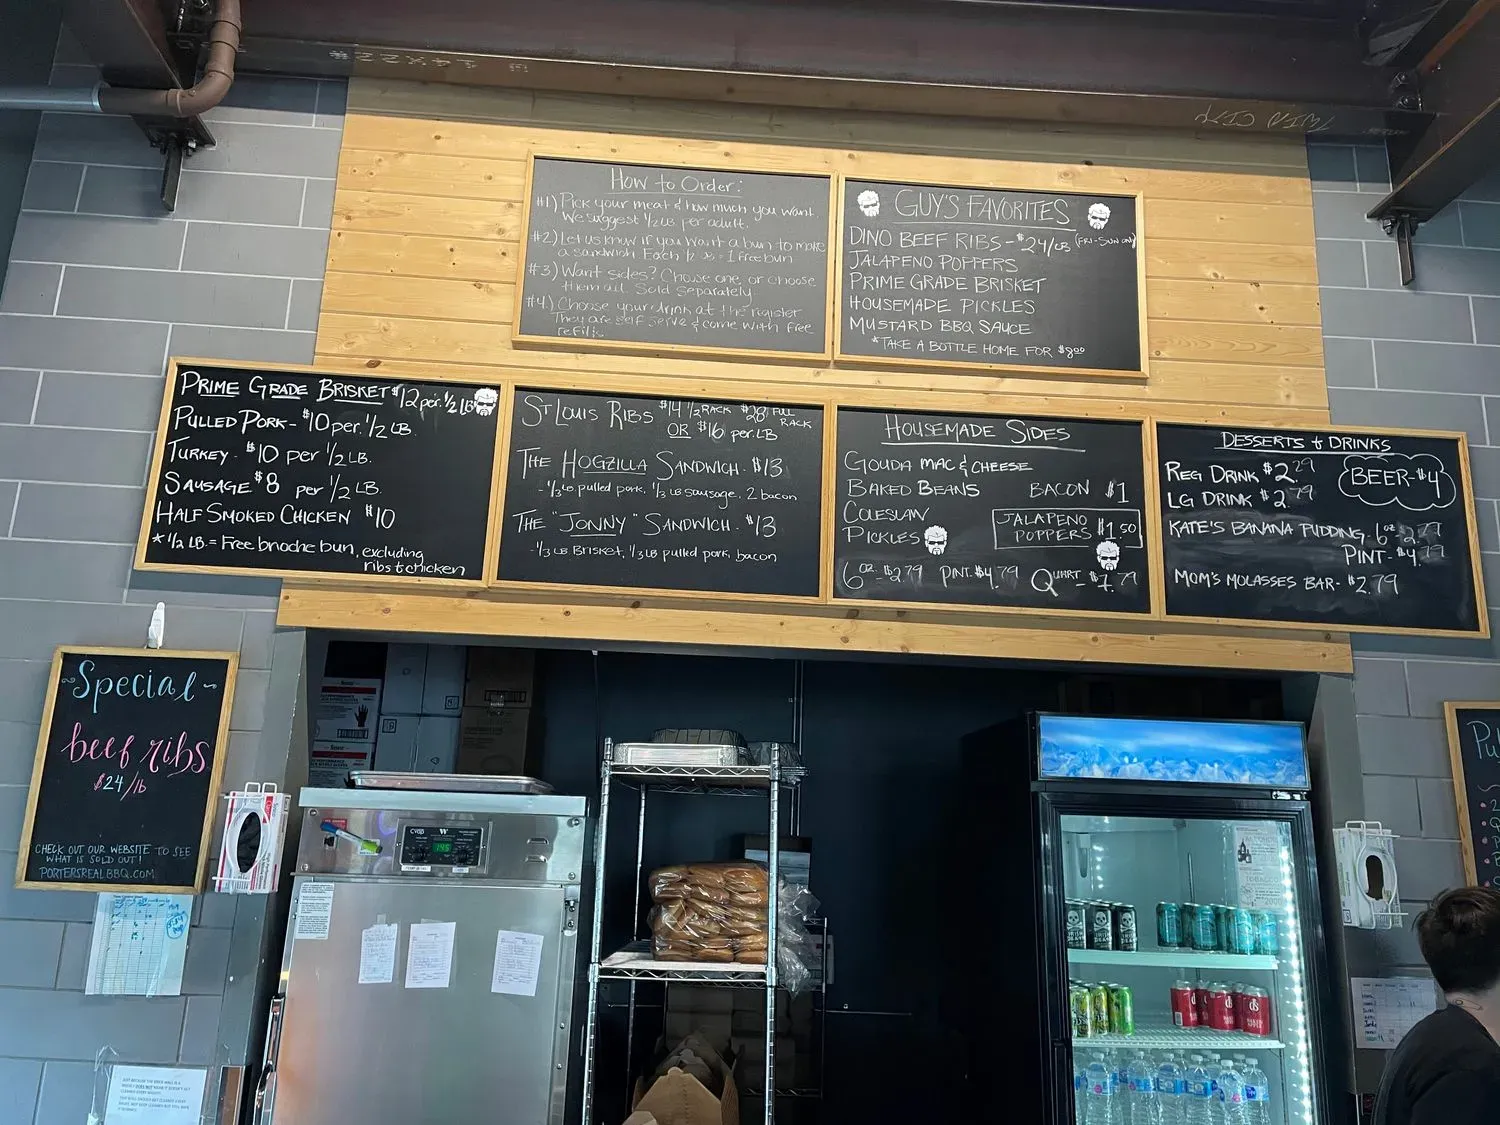 How to Order:
#1) Pick your meat & how much you want.
We suggest 1/2 LB per adult.
#2) Let us know if you want a bun to make
a sandwich. Each 1/2 LB = 1 free bun
#3) Want sides? Choose one, or choose
them all. Sold separately
#4) Choose your drink at the register
They are self serve & come with free
refills.
GUY'S FAVORITES
DINO BEEF RIBS - $24/LB (FRI-SUN ONLY)
JALAPENO POPPERS
PRIME GRADE BRISKET
HOUSEMADE PICKLES
MUSTARD BBQ SAUCE
*TAKE A BOTTLE HOME FOR $8.00
PRIME GRADE BRISKET $12 per. 1/2 LB
PULLED PORK - $10 per. 1/2 LB.
TURKEY - $10 per 1/2 LB.
SAUSAGE $8 per 1/2 LB.
HALF SMOKED CHICKEN $10
* 1/2 LB. = Free brioche bun, excluding
ribs & chicken
ST LOUIS RIBS $14 1/2 RACK $28 FULL RACK
OR $16 per. LB
THE HOGZILLA SANDWICH - $13
- 1/3 LB pulled pork, 1/3 LB sausage, 2 bacon
THE "JONNY" SANDWICH - $13
- 1/3 LB BRISKET, 1/3 LB pulled pork, bacon
HOUSEMADE SIDES
GOUDA MAC & CHEESE
BAKED BEANS BACON $1
COLESLAW
PICKLES
JALAPENO
POPPERS $1.50
6oz - $2.79 PINT - $4.79 QUART - $7.79
DESSERTS & DRINKS
REG DRINK $2.29
LG DRINK $2.79
BEER - $4
KATE'S BANANA PUDDING - 6oz - $2.79
PINT - $4.79
MOM'S MOLASSES BAR - $2.79
Special
beef ribs
$24/lb
CHECK OUT OUR WEBSITE TO SEE
WHAT IS SOLD OUT!
PORTERSREALBBQ.COM
CVap
145
TWIN CITY